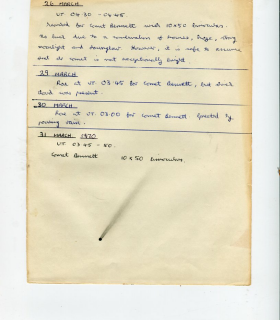 26 MARCH.
UT 04.30 - 04.45.
Searched for Comet Bennett with 10x50 binoculars.
No luck due to a combination of houses, haze, strong
moonlight and
However, it is safe to assume
that the comet is not exceptionally bright.
29 MARCH
Rose at UT. 03.45 for Comet Bennett, but thick
cloud was present.
30 MARCH
Rose at UT. 03.00 for Comet Bennett. Greeted by
pouring rain.
31 MARCH 1970
UT. 03.45 - 50.
Comet Bennett 10 x 50 binoculars.